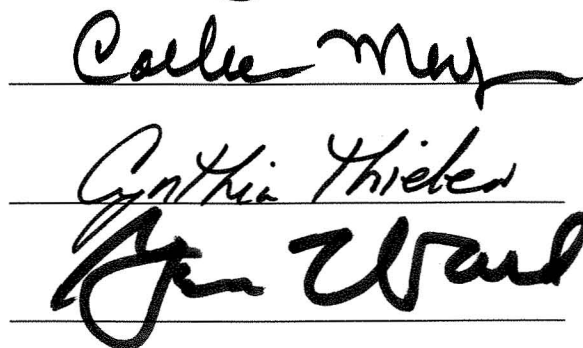 Colleen Mey
Cynthia Thielen
Ward